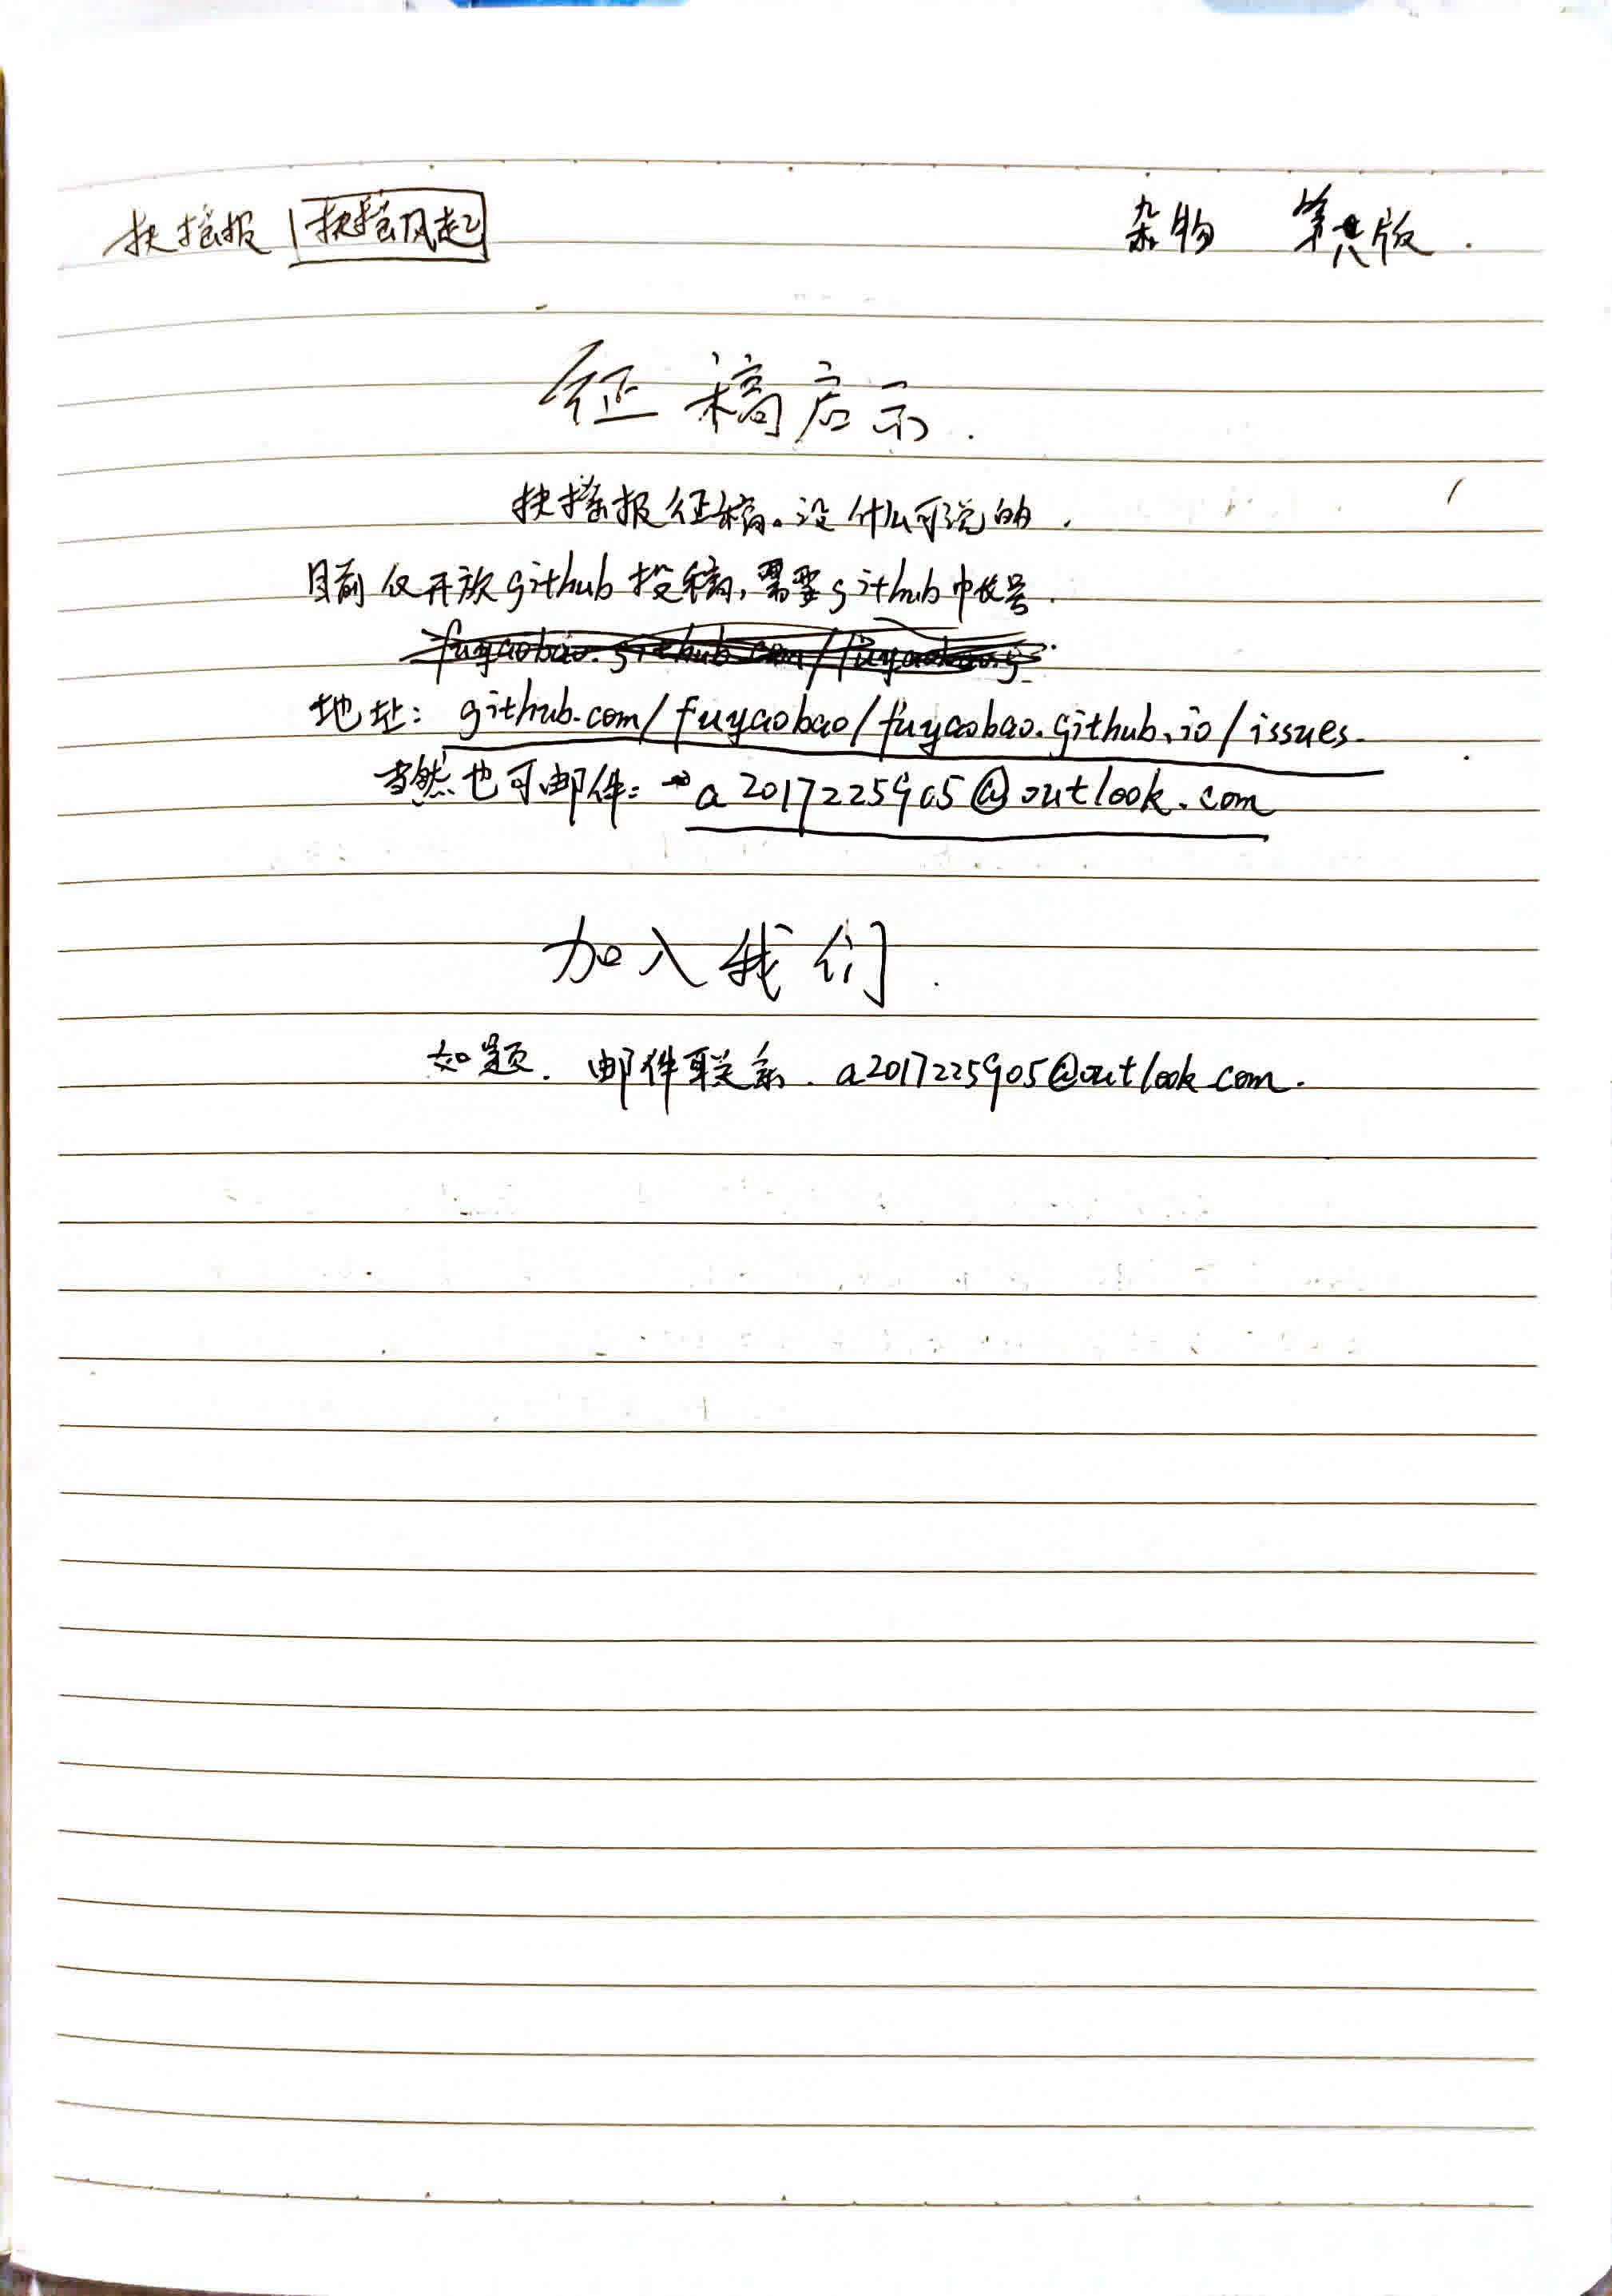 扶摇报 扶摇风起 杂物 第八版.
征稿启示.
扶摇报征稿。没什么可说的.
目前仅开放github投稿,需要github帐号.
地址: github.com/fuyaobao/fuyaobao.github.io/issues.
当然也可邮件: a2017225905@outlook.com
加入我们.
如题. 邮件联系. a2017225905@outlook.com.